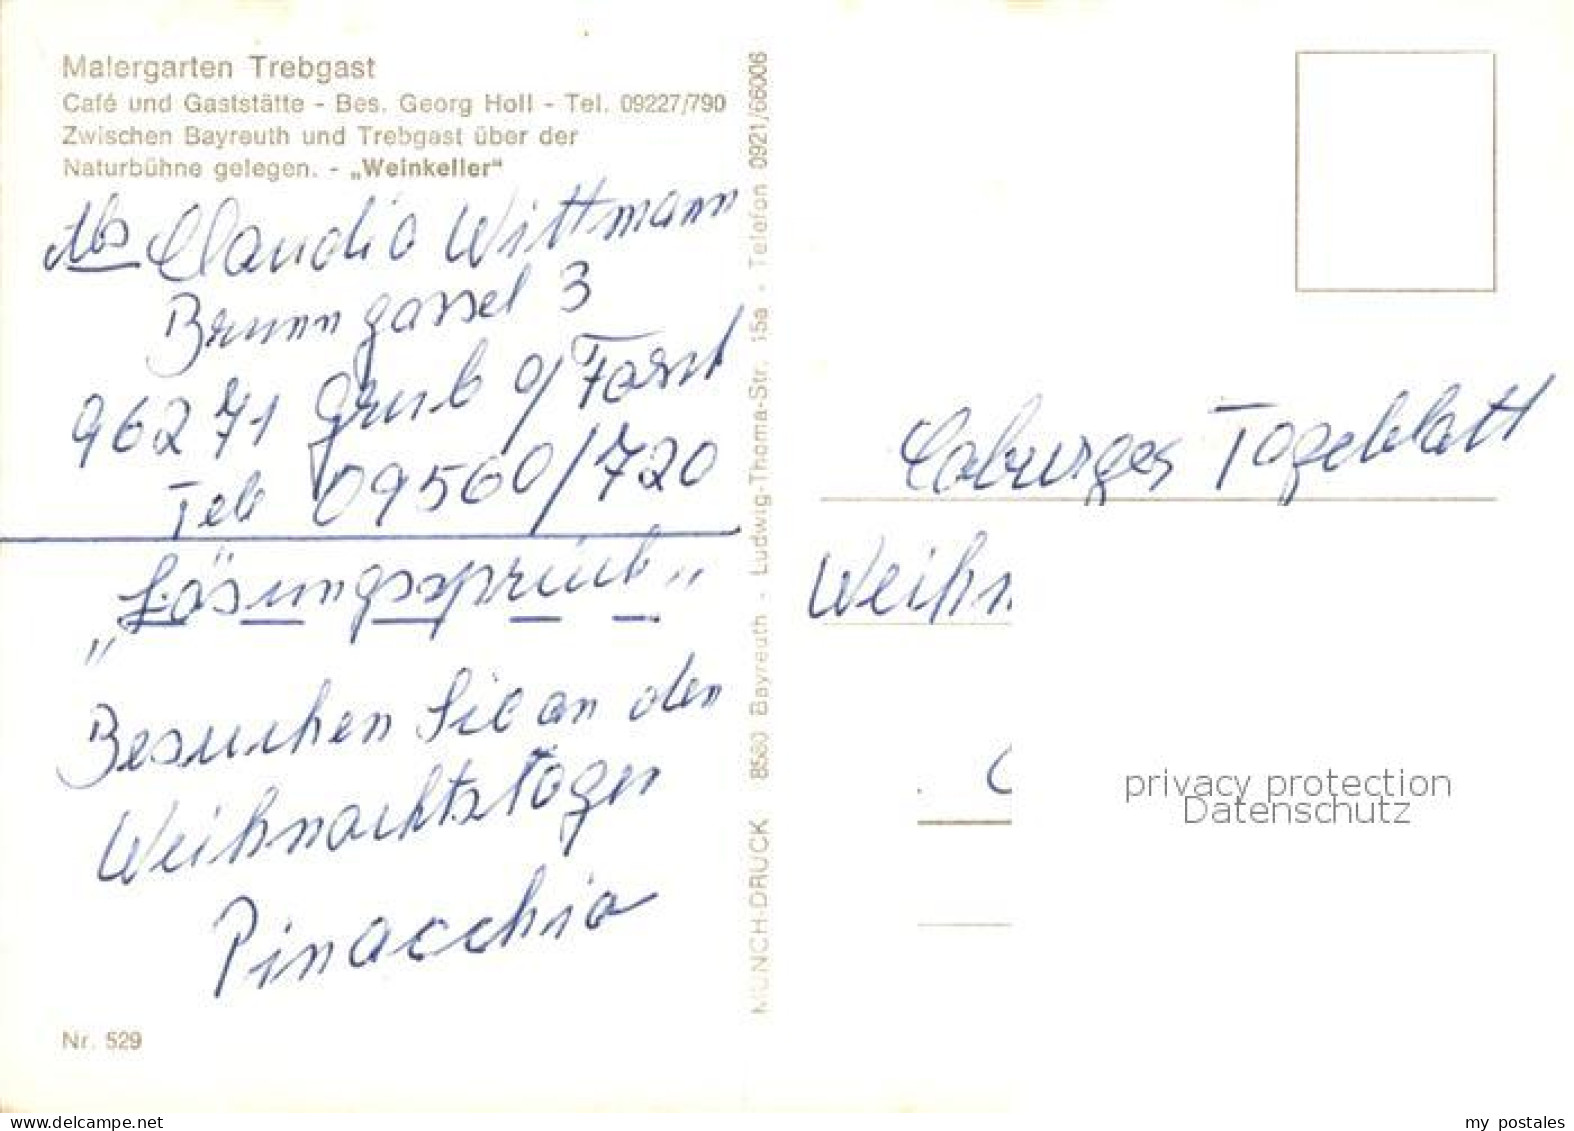 Malergarten Trebgast
Café und Gaststätte - Bes. Georg Holl - Tel. 09227/790
Zwischen Bayreuth und Trebgast über der
Naturbühne gelegen. - „Weinkeller"
Abs Claudia Wittmann
Brunngassel 3
96271 Grub a/Forst
Tel 09560/720
„Lösungsspruch"
Besuchen Sie an den
Weihnachtstagen
Pinocchio
Nr. 529
MÜNCH-DRUCK 8580 Bayreuth - Ludwig-Thoma-Str. 15a - Telefon 0921/66006
Coburger Tageblatt
Weihn
privacy protection
Datenschutz
www.delcampe.net
my_postales